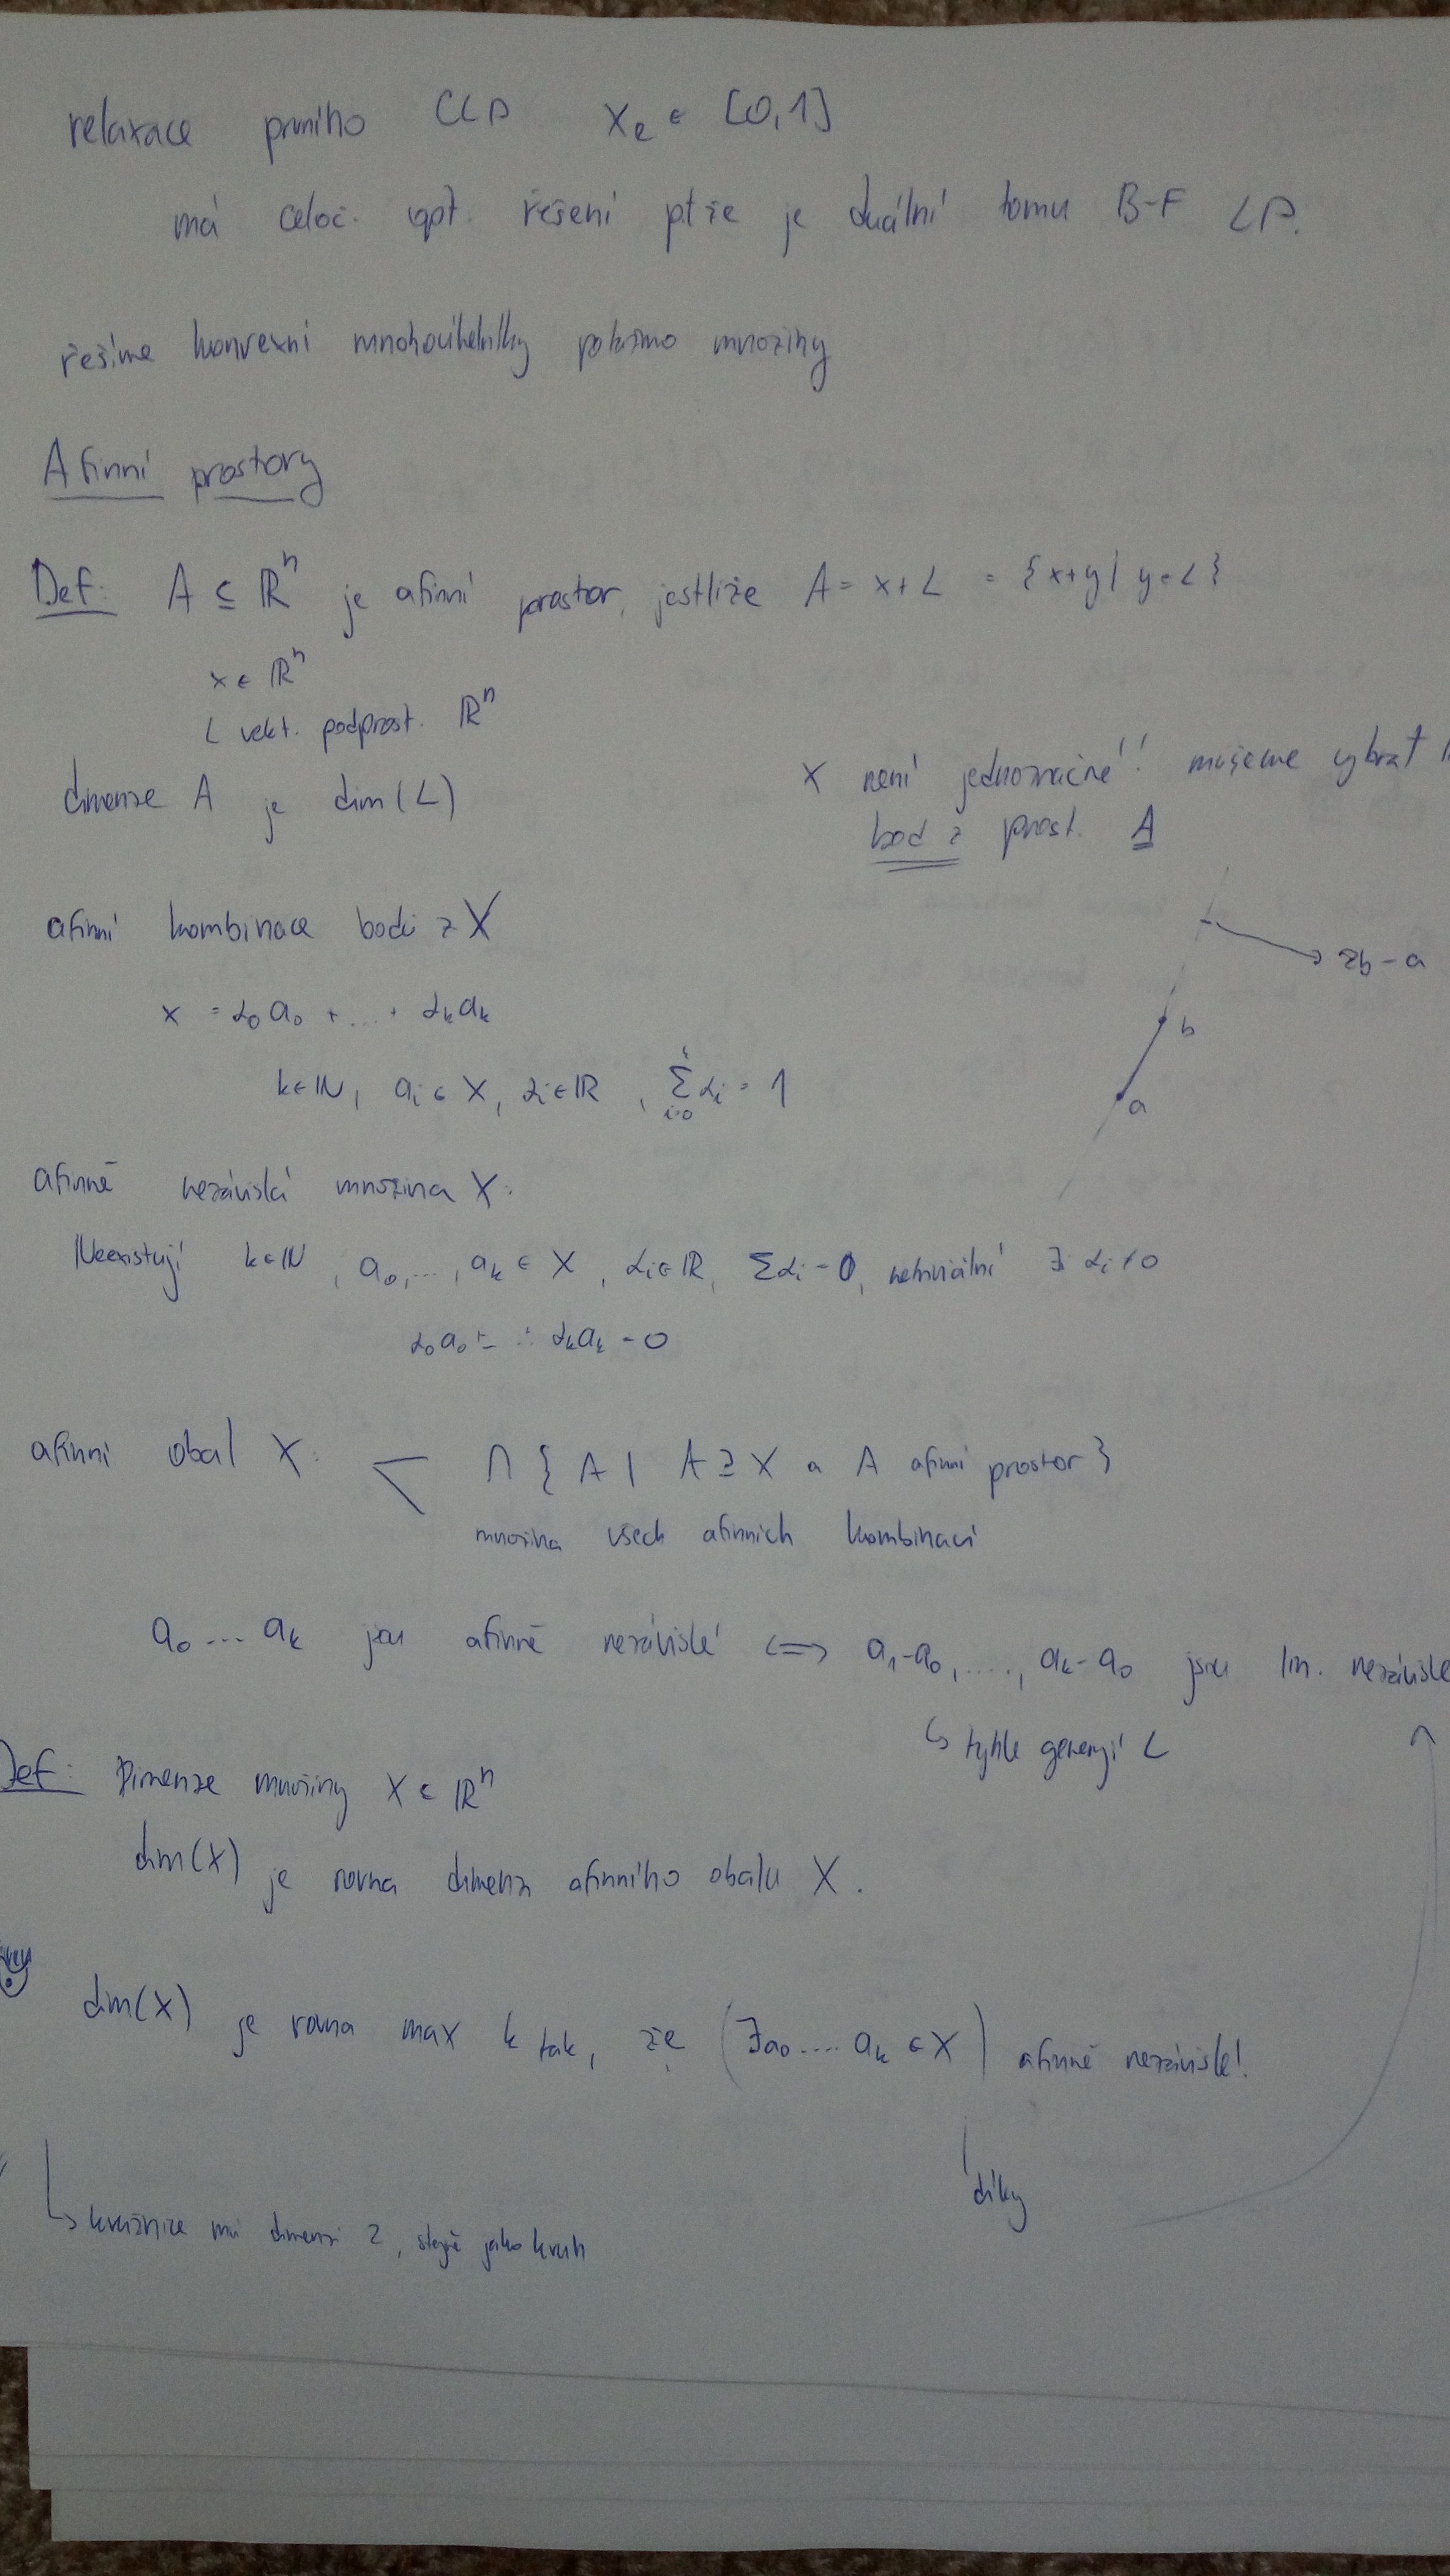 relaxace prvního CLP x_e ∈ [0,1]
má celoč. opt. řešení ptže je duální tomu B-F LP.
řešíme konvexní mnohoúhelníky množiny
Afinní prostory
Def: A ⊆ ℝⁿ je afinní prostor, jestliže A = x + L = {x+y | y ∈ L}
x ∈ ℝⁿ
L vekt. podprost. ℝⁿ
dimenze A je dim(L)
x není jednoznačné!! můžeme vybrat
bod z prost. A
afinní kombinace bodů z X
2b - a
x = α₀a₀ + ... + αₖaₖ
b
k∈ℕ, aᵢ ∈ X, αᵢ∈ℝ, Σ_{i=0}^{k} αᵢ = 1
a
afinně nezávislá množina X:
Neexistují k∈ℕ, a₀,..., aₖ ∈ X, αᵢ∈ℝ, Σαᵢ = 0, netriviální ∃ αᵢ ≠ 0
α₀a₀ + ... αₖaₖ = 0
afinní obal X: ⋂ { A | A ⊇ X a A afinní prostor }
množina všech afinních kombinací
a₀ ... aₖ jsou afinně nezávislé ⟺ a₁-a₀, ....., aₖ-a₀ jsou lin. nezávislé
↳ tyhle generují L
Def: Dimenze množiny X ⊂ ℝⁿ
dim(X) je rovna dimenzi afinního obalu X.
dim(X) je rovna max k tak, že (∃a₀ .... aₖ ∈ X) afinně nezávislé!
díky
↳ kružnice má dimenzi 2, stejně jako kruh